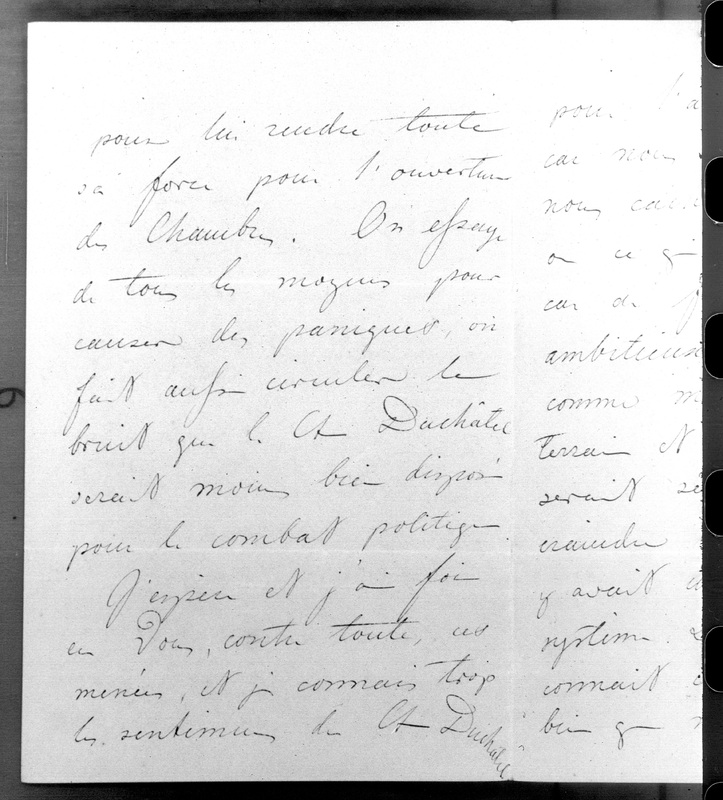 pour lui rendre toute
sa force pour l'ouverture
des Chambres. On essaye
de tous les moyens pour
causer des paniques, on
fait aussi circuler le
bruit que le Ct Duchâtel
serait moins bien disposé
pour le combat politique.
J'espère et j'ai foi
en Vous, contre toutes ces
menées, et je connais trop
les sentimens du Ct Duchâtel
pour l'a
car nous
nous
on ce q
car de
ambitieuse
comme m
terrain et
serait
craindre
y avait
système
connait
bien que